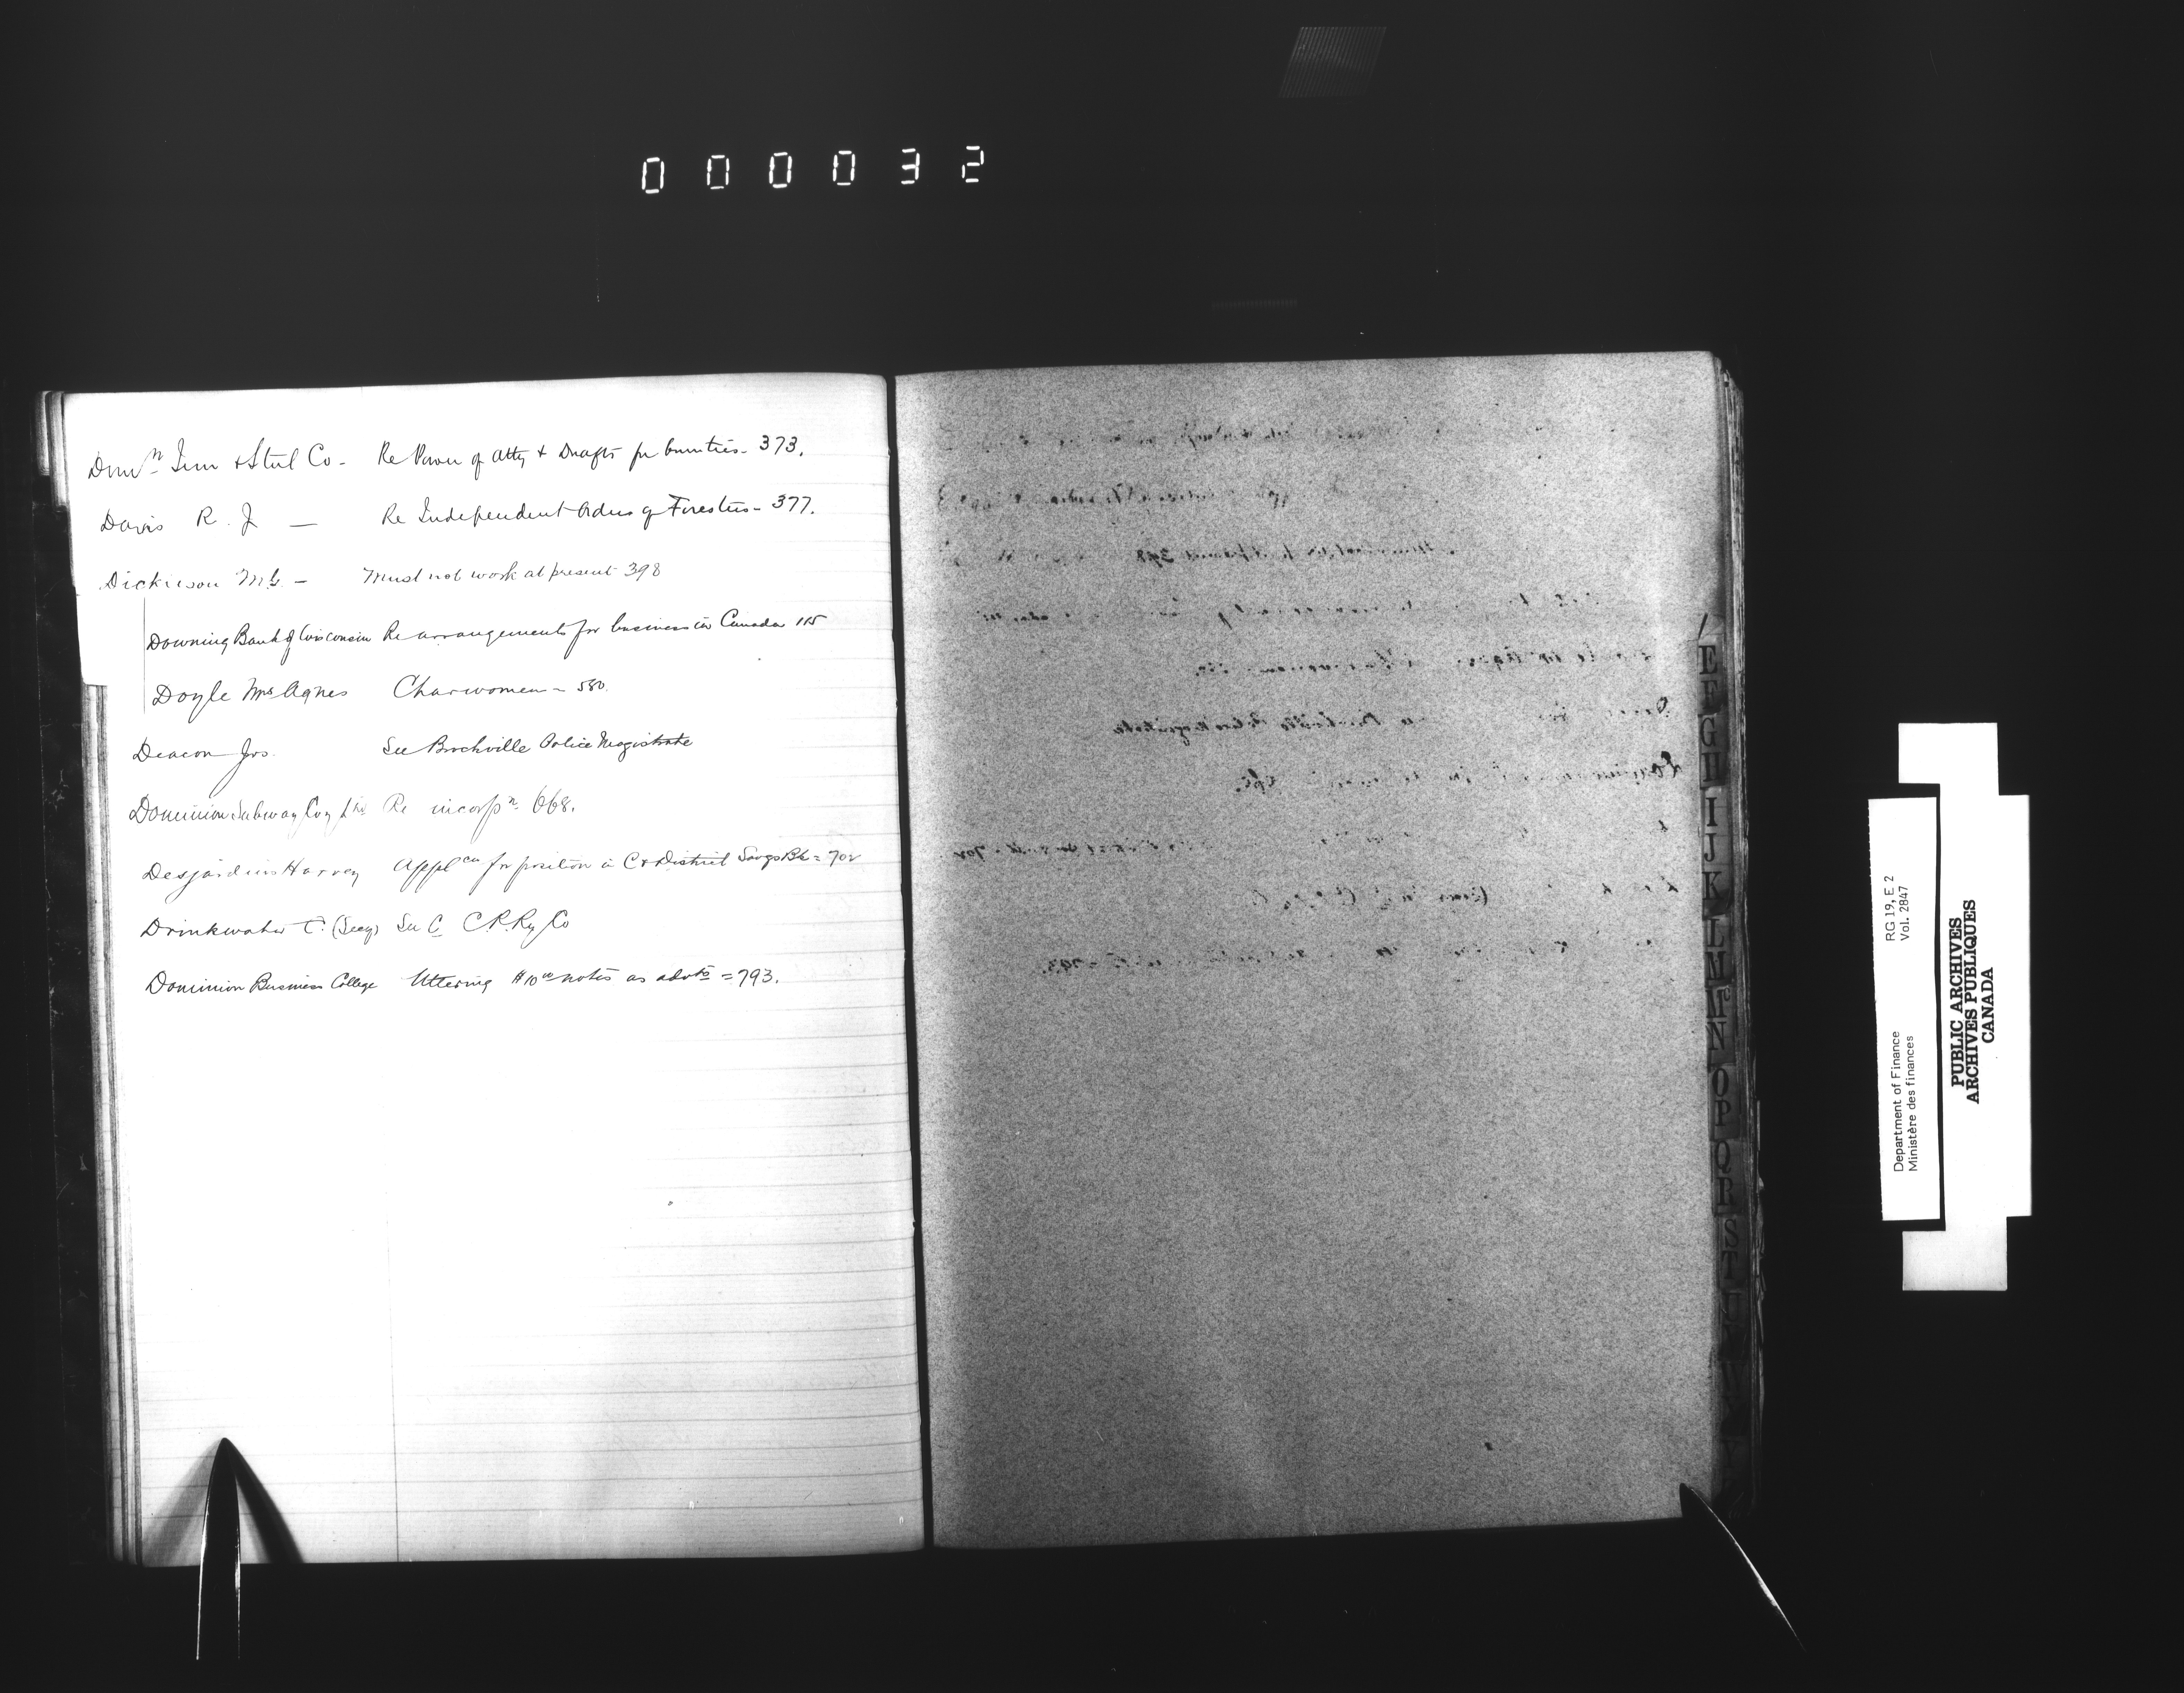 000032
Domn Iron & Steel Co - Re Power of Atty & Drafts for bounties - 373.
Davis R. J — Re Independent Order of Foresters - 377.
Dickieson M.G. - Must not work at present 398
Downing Bank of Wisconsin Re arrangements for business in Canada 115
Doyle Mrs Agnes Charwomen - 580.
Deacon Jos. See Brockville Police Magistrate
Dominion Subway Coy Ltd Re incorpn 668.
Desjardins Harvey Applcn for position in C & District Savgs Bk = 702
Drinkwater C. (Secy) See C C.P.Ry Co
Dominion Business College Uttering $10 00 notes as advts = 793.
E
F
G
H
I
J
K
L
M
Mc
N
O
P
Q
R
S
T
Department of Finance RG 19, E 2
Ministère des finances Vol. 2847
PUBLIC ARCHIVES
ARCHIVES PUBLIQUES
CANADA